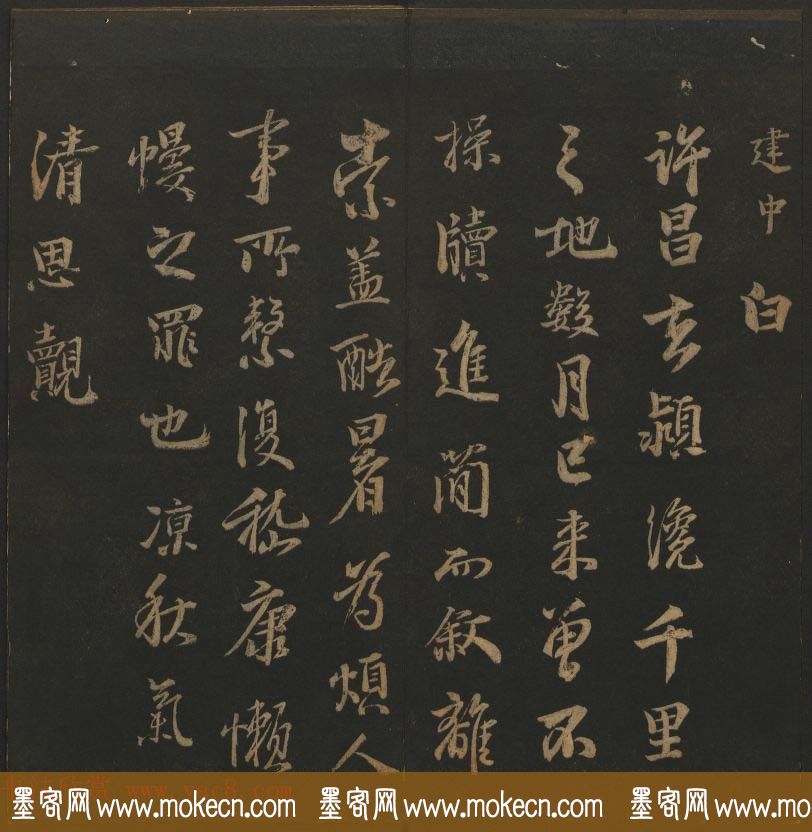 建中白
許昌去潁纔千里
之地數月已来曽不
操牘進簡而叙離
索蓋酷暑為煩人
事所繫復嵇康懶
慢之罪也凉秋氣
清思覿
www.yac8.com
墨客网www.mokecn.com 墨客网www.mokecn.com 墨客网www.mo